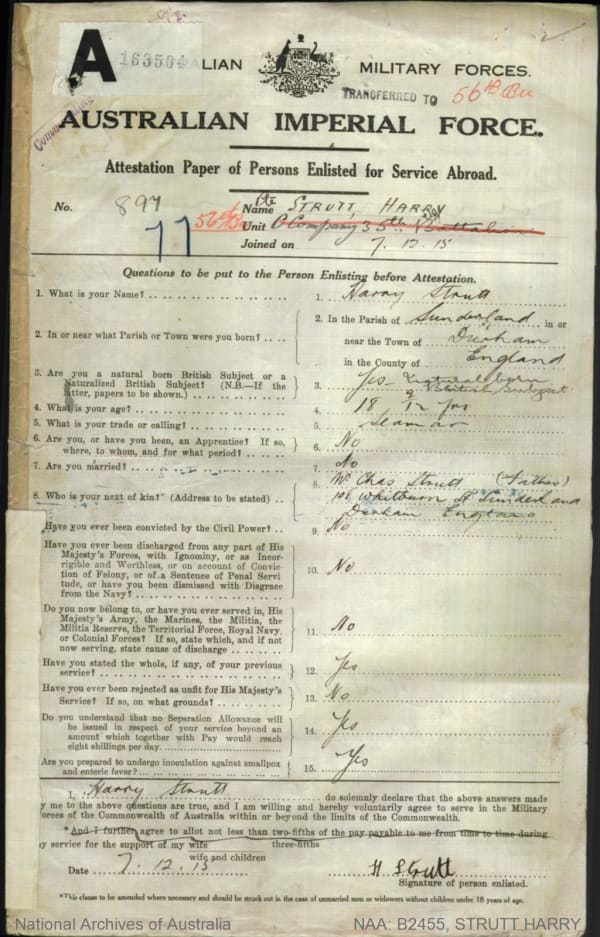 A
163504
LIAN MILITARY FORCES.
TRANSFERRED TO 56th Bn
AUSTRALIAN IMPERIAL FORCE.
Attestation Paper of Persons Enlisted for Service Abroad.
No. 897
Name STRUTT HARRY
56th Unit C Company 35th Battalion
Joined on 7.12.15
Questions to be put to the Person Enlisting before Attestation.
1. What is your Name? 1. Harry Strutt
2. In or near what Parish or Town were you born? 2. In the Parish of Sunderland in or
near the Town of Durham
in the County of England
3. Are you a natural born British Subject or a
Naturalized British Subject? (N.B.—If the
tter, papers to be shown.) 3. Yes - Natural born
British Subject
4. What is your age? 4. 18
5. What is your trade or calling? 5. Seaman
6. Are you, or have you been, an Apprentice? If so,
where, to whom, and for what period? 6. No
7. Are you married? 7. No
8. Who is your next of kin? (Address to be stated) 8. Mr Chas Strutt (Father)
106 Whitburn St Sunderland
Durham England
Have you ever been convicted by the Civil Power? 9. No
Have you ever been discharged from any part of His
Majesty's Forces, with Ignominy, or as Incor-
rigible and Worthless, or on account of Convic-
tion of Felony, or of a Sentence of Penal Servi-
tude, or have you been dismissed with Disgrace
from the Navy? 10. No
Do you now belong to, or have you ever served in, His
Majesty's Army, the Marines, the Militia, the
Militia Reserve, the Territorial Force, Royal Navy,
or Colonial Forces? If so, state which, and if not
now serving, state cause of discharge 11. No
Have you stated the whole, if any, of your previous
service? 12. Yes
Have you ever been rejected as unfit for His Majesty's
Service? If so, on what grounds? 13. No
Do you understand that no Separation Allowance will
be issued in respect of your service beyond an
amount which together with Pay would reach
eight shillings per day. 14. Yes
Are you prepared to undergo inoculation against smallpox
and enteric fever? 15. Yes
I, Harry Strutt do solemnly declare that the above answers made
y me to the above questions are true, and I am willing and hereby voluntarily agree to serve in the Military
orces of the Commonwealth of Australia within or beyond the limits of the Commonwealth.
*And I further agree to allot not less than two-fifths of the pay payable to me from time to time during
three-fifths
y service for the support of my wife
wife and children
Date 7.12.15 H Strutt
Signature of person enlisted.
*This clause to be amended where necessary and should be struck out in the case of unmarried men or widowers without children under 18 years of age.
National Archives of Australia NAA: B2455, STRUTT HARRY